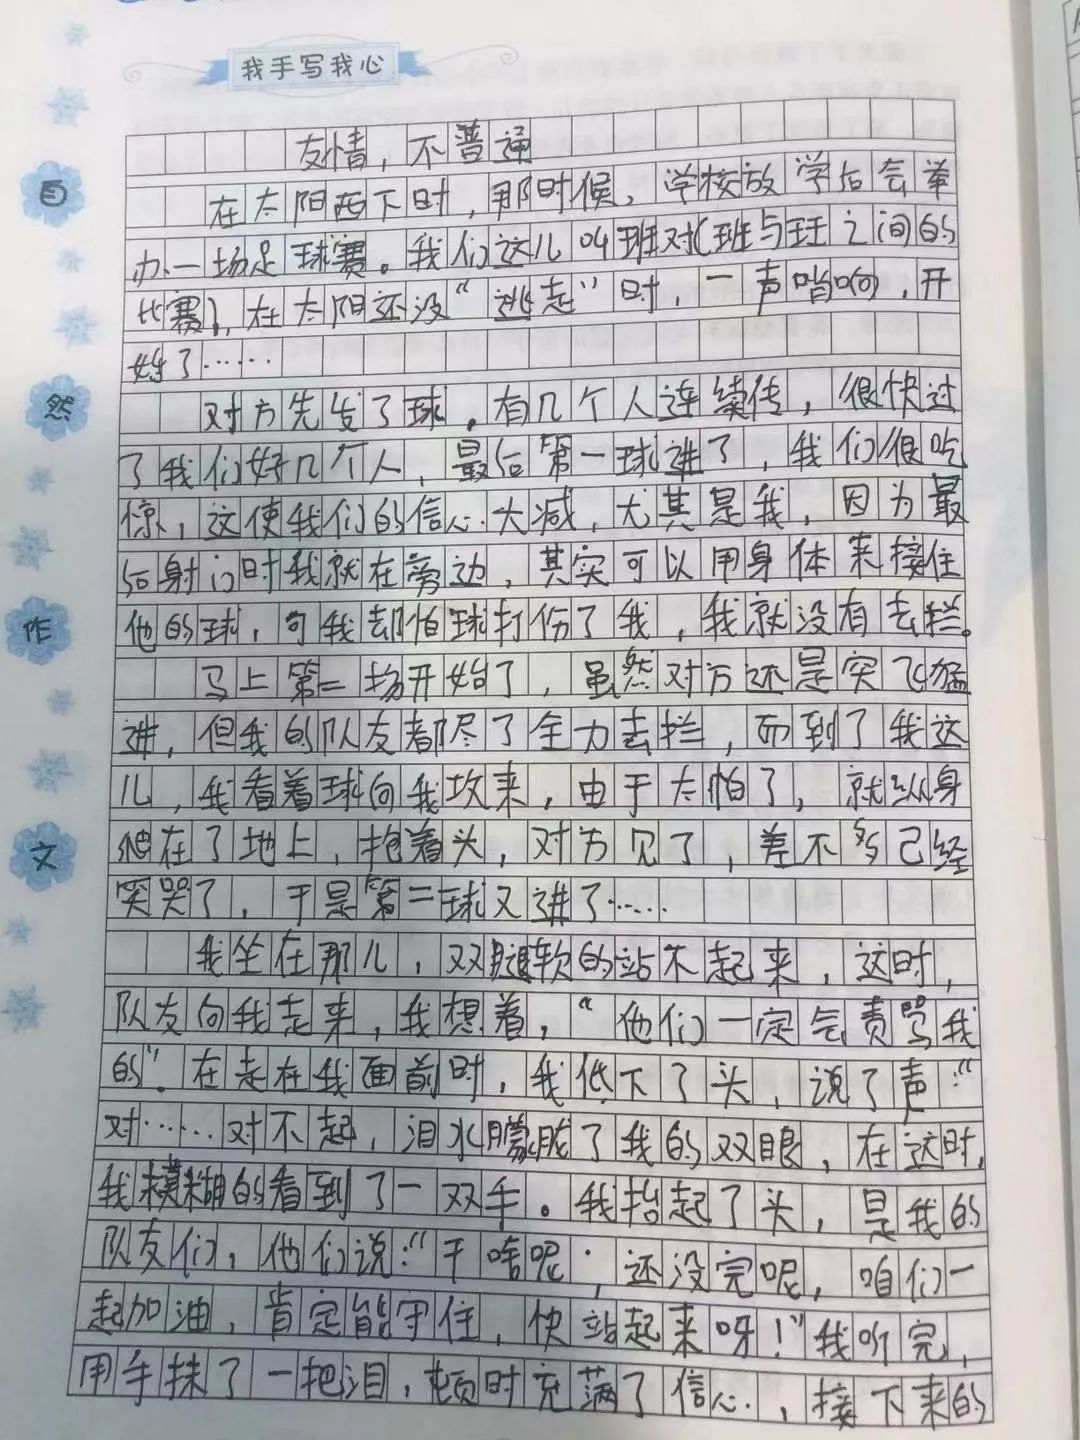 我手写我心
自
然
作
文
友情，不普通
在太阳西下时，那时候，学校放学后会举
办一场足球赛。我们这儿叫班对（班与班之间的
比赛），在太阳还没“逃走”时，一声哨响，开
始了……
对方先发了球，有几个人连续传，很快过
了我们好几个人，最后第一球进了，我们很吃
惊，这使我们的信心大减，尤其是我，因为最
后射门时我就在旁边，其实可以用身体来接住
他的球，可我却怕球打伤了我，我就没有去拦。
马上第二场开始了，虽然对方还是突飞猛
进，但我的队友都尽了全力去拦，而到了我这
儿，我看着球向我攻来，由于太怕了，就纵身
爬在了地上，抱着头，对方见了，差不多已经
笑哭了，于是第二球又进了……
我坐在那儿，双腿软的站不起来，这时，
队友向我走来，我想着，“他们一定会责骂我
的”。在走在我面前时，我低下了头，说了声：“
对……对不起，泪水朦胧了我的双眼，在这时，
我模糊的看到了一双手。我抬起了头，是我的
队友们，他们说：“干啥呢，还没完呢，咱们一
起加油，肯定能守住，快站起来呀！”我听完，
用手抹了一把泪，顿时充满了信心，接下来的